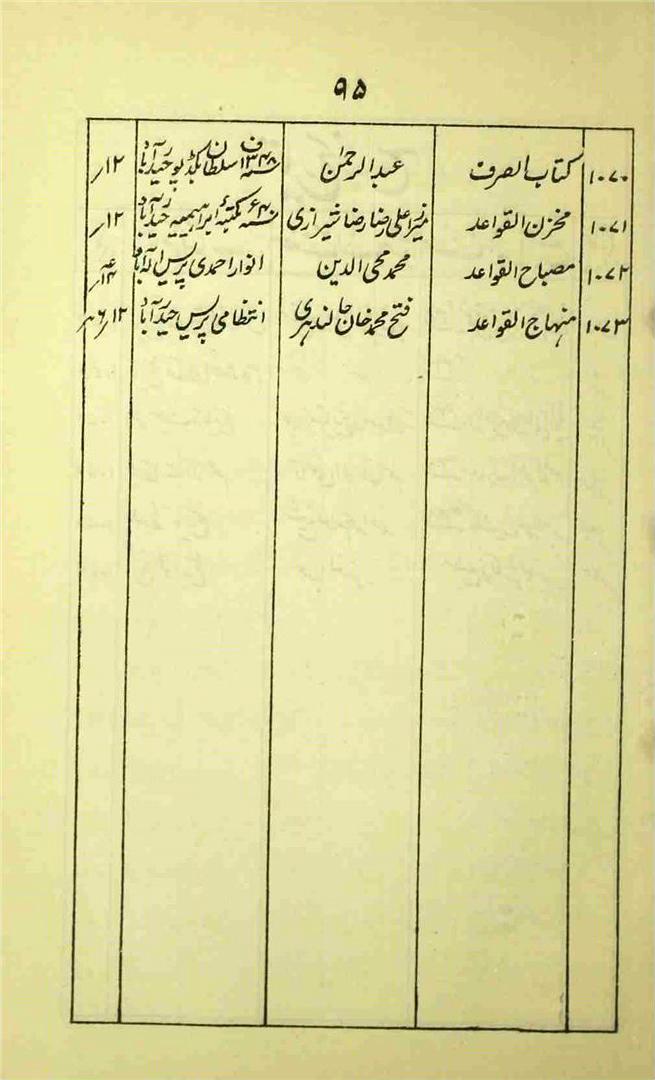 ۹۵
۱۰۷۰ کتاب الصرف عبدالرحمٰن ۱۳۴۸ف سلطان بکڈپو حیدرآباد ۱۲؍
۱۰۷۱ مخزن القواعد میرزا علی رضا رضا شیرازی مکتبۂ ابراہیمیہ حیدرآباد ۱۲؍
۱۰۷۲ مصباح القواعد محمد محی الدین انوار احمدی پریس الہ آباد
۱۰۷۳ منہاج القواعد فتح محمد خان جالندہری انتظامی پریس حیدرآباد